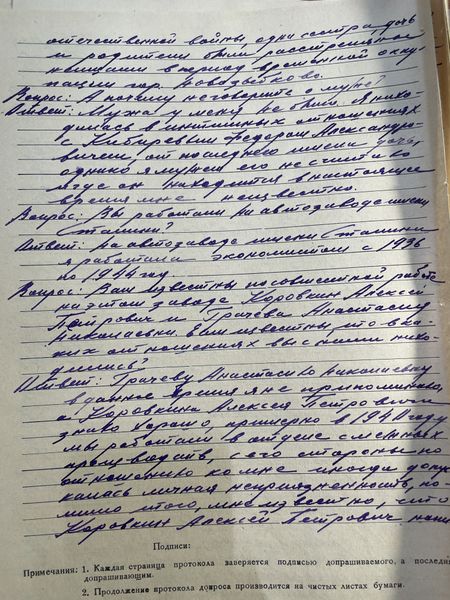 отечественной войны, одна сестра, дочь
и родители были расстреляны
немцами в период временной окку-
пации гор. Новозыбково.
Вопрос: А почему не говорите о муже?
Ответ: Мужа у меня не было. Я нахо-
дилась в интимных отношениях
с Федором Александро-
вичем, от последнего имела дочь,
однако я мужем его не считаю
и где он находится в настоящее
время мне неизвестно.
Вопрос: Вы работали на автозаводе имени
Сталина?
Ответ: На автозаводе имени Сталина
я работала экономистом с 1936
по 1944 год.
Вопрос: Вам известны по совместной работе
на этом заводе Коровкин Алексей
Петрович и Грачева Анастасия
Николаевна. Если известны, то в ка-
ких отношениях вы с ними нахо-
дились?
Ответ: Грачеву Анастасию Николаевну
в данное время я не припоминаю,
а Коровкина Алексея Петровича
знаю хорошо, примерно в 1940 году
мы работали в отделе смежных
производств, с его стороны по
отношению ко мне иногда допус-
калась личная неприязненность, по-
мимо этого, мне известно что
Коровкин Алексей Петрович
Подписи:
Примечания: 1. Каждая страница протокола заверяется подписью допрашиваемого, а последн
допрашивающим.
2. Продолжение протокола допроса производится на чистых листах бумаги.